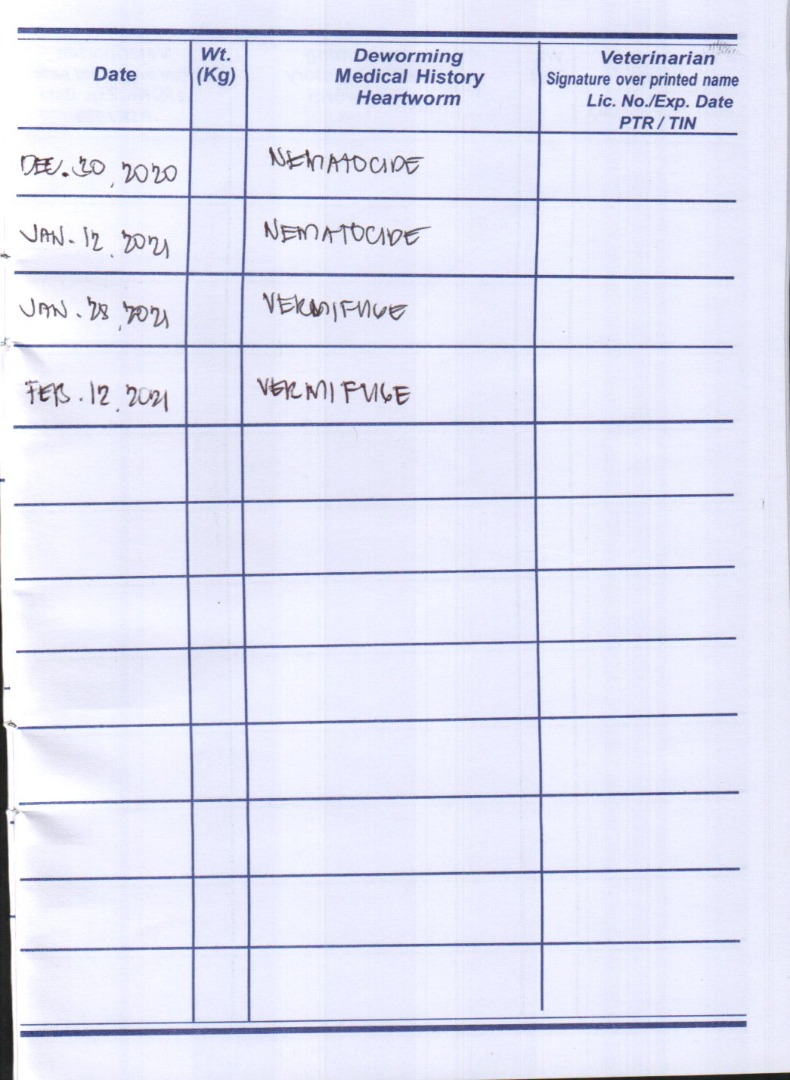 Date
Wt.
(Kg)
Deworming
Medical History
Heartworm
Veterinarian
Signature over printed name
Lic. No./Exp. Date
PTR / TIN
DEC. 30, 2020 NEMATOCIDE
JAN. 12, 2021 NEMATOCIDE
JAN. 28, 2021 VERMIFUGE
FEB. 12, 2021 VERMIFUGE